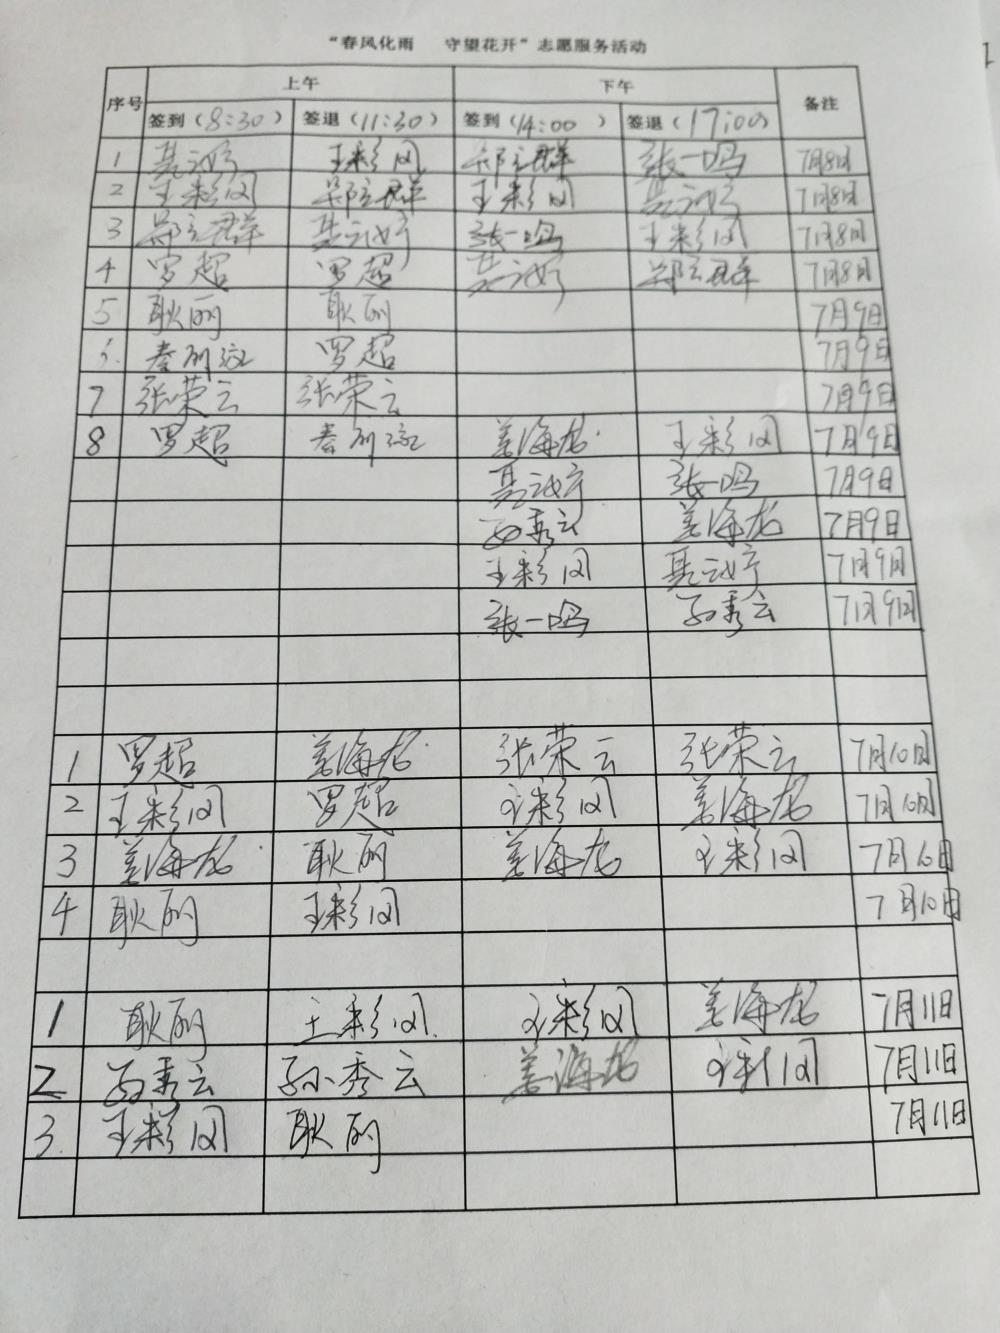 “春风化雨 守望花开”志愿服务活动
序号 上午 下午 备注
签到(8:30) 签退(11:30) 签到(14:00) 签退(17:00)
1 王彩闵 郑立群 张一鸣 7月8日
2 王彩闵 郑立群 王彩闵 7月8日
3 郑立群 张一鸣 王彩闵 7月8日
4 罗超 罗超 郑立群 7月8日
5 耿丽 耿丽 7月9日
罗超 7月9日
7 张荣云 张荣云 7月9日
8 罗超 姜海龙 王彩闵 7月9日
张一鸣 7月9日
孙秀云 姜海龙 7月9日
王彩闵 7月9日
张一鸣 孙秀云 7月9日
1 罗超 姜海龙 张荣云 张荣云 7月10日
2 王彩闵 罗超 王彩闵 姜海龙 7月10日
3 姜海龙 耿丽 姜海龙 王彩闵 7月10日
4 耿丽 王彩闵 7月10日
1 耿丽 王彩闵 王彩闵 姜海龙 7月11日
2 孙秀云 孙秀云 姜海龙 王彩闵 7月11日
3. 王彩闵 耿丽 7月11日